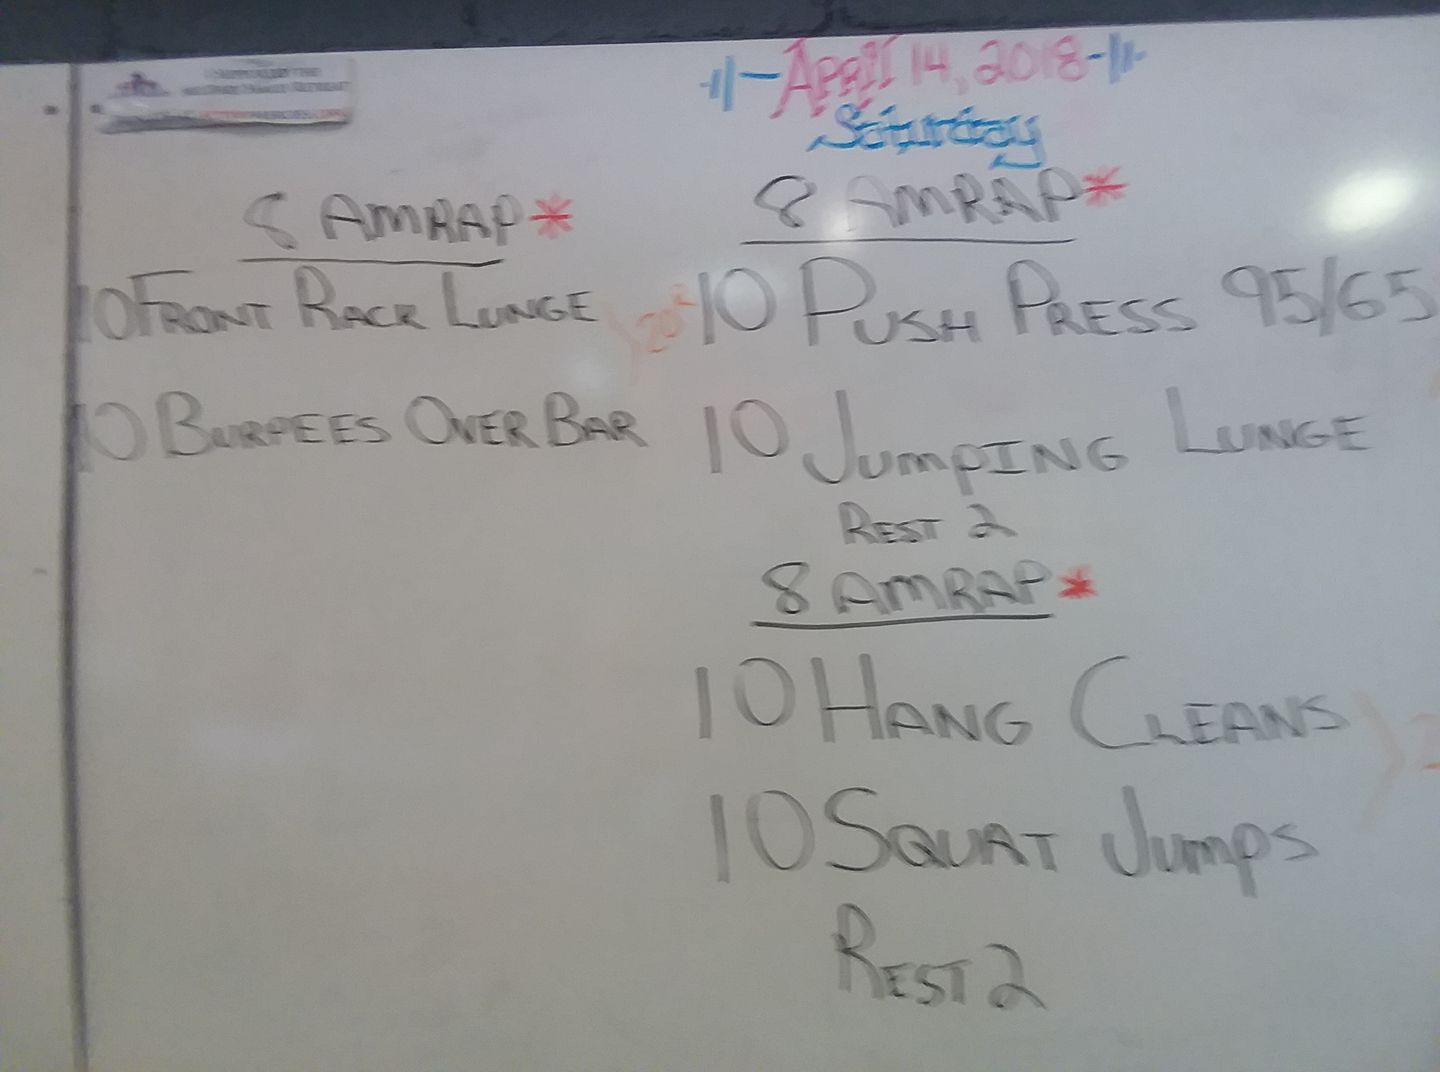 April 14, 2018
Saturday
8 AMRAP*
10 FRONT RACK LUNGE
10 BURPEES OVER BAR
8 AMRAP*
10 PUSH PRESS 95/65
10 JUMPING LUNGE
REST 2
8 AMRAP*
10 HANG CLEANS
10 SQUAT JUMPS
REST 2